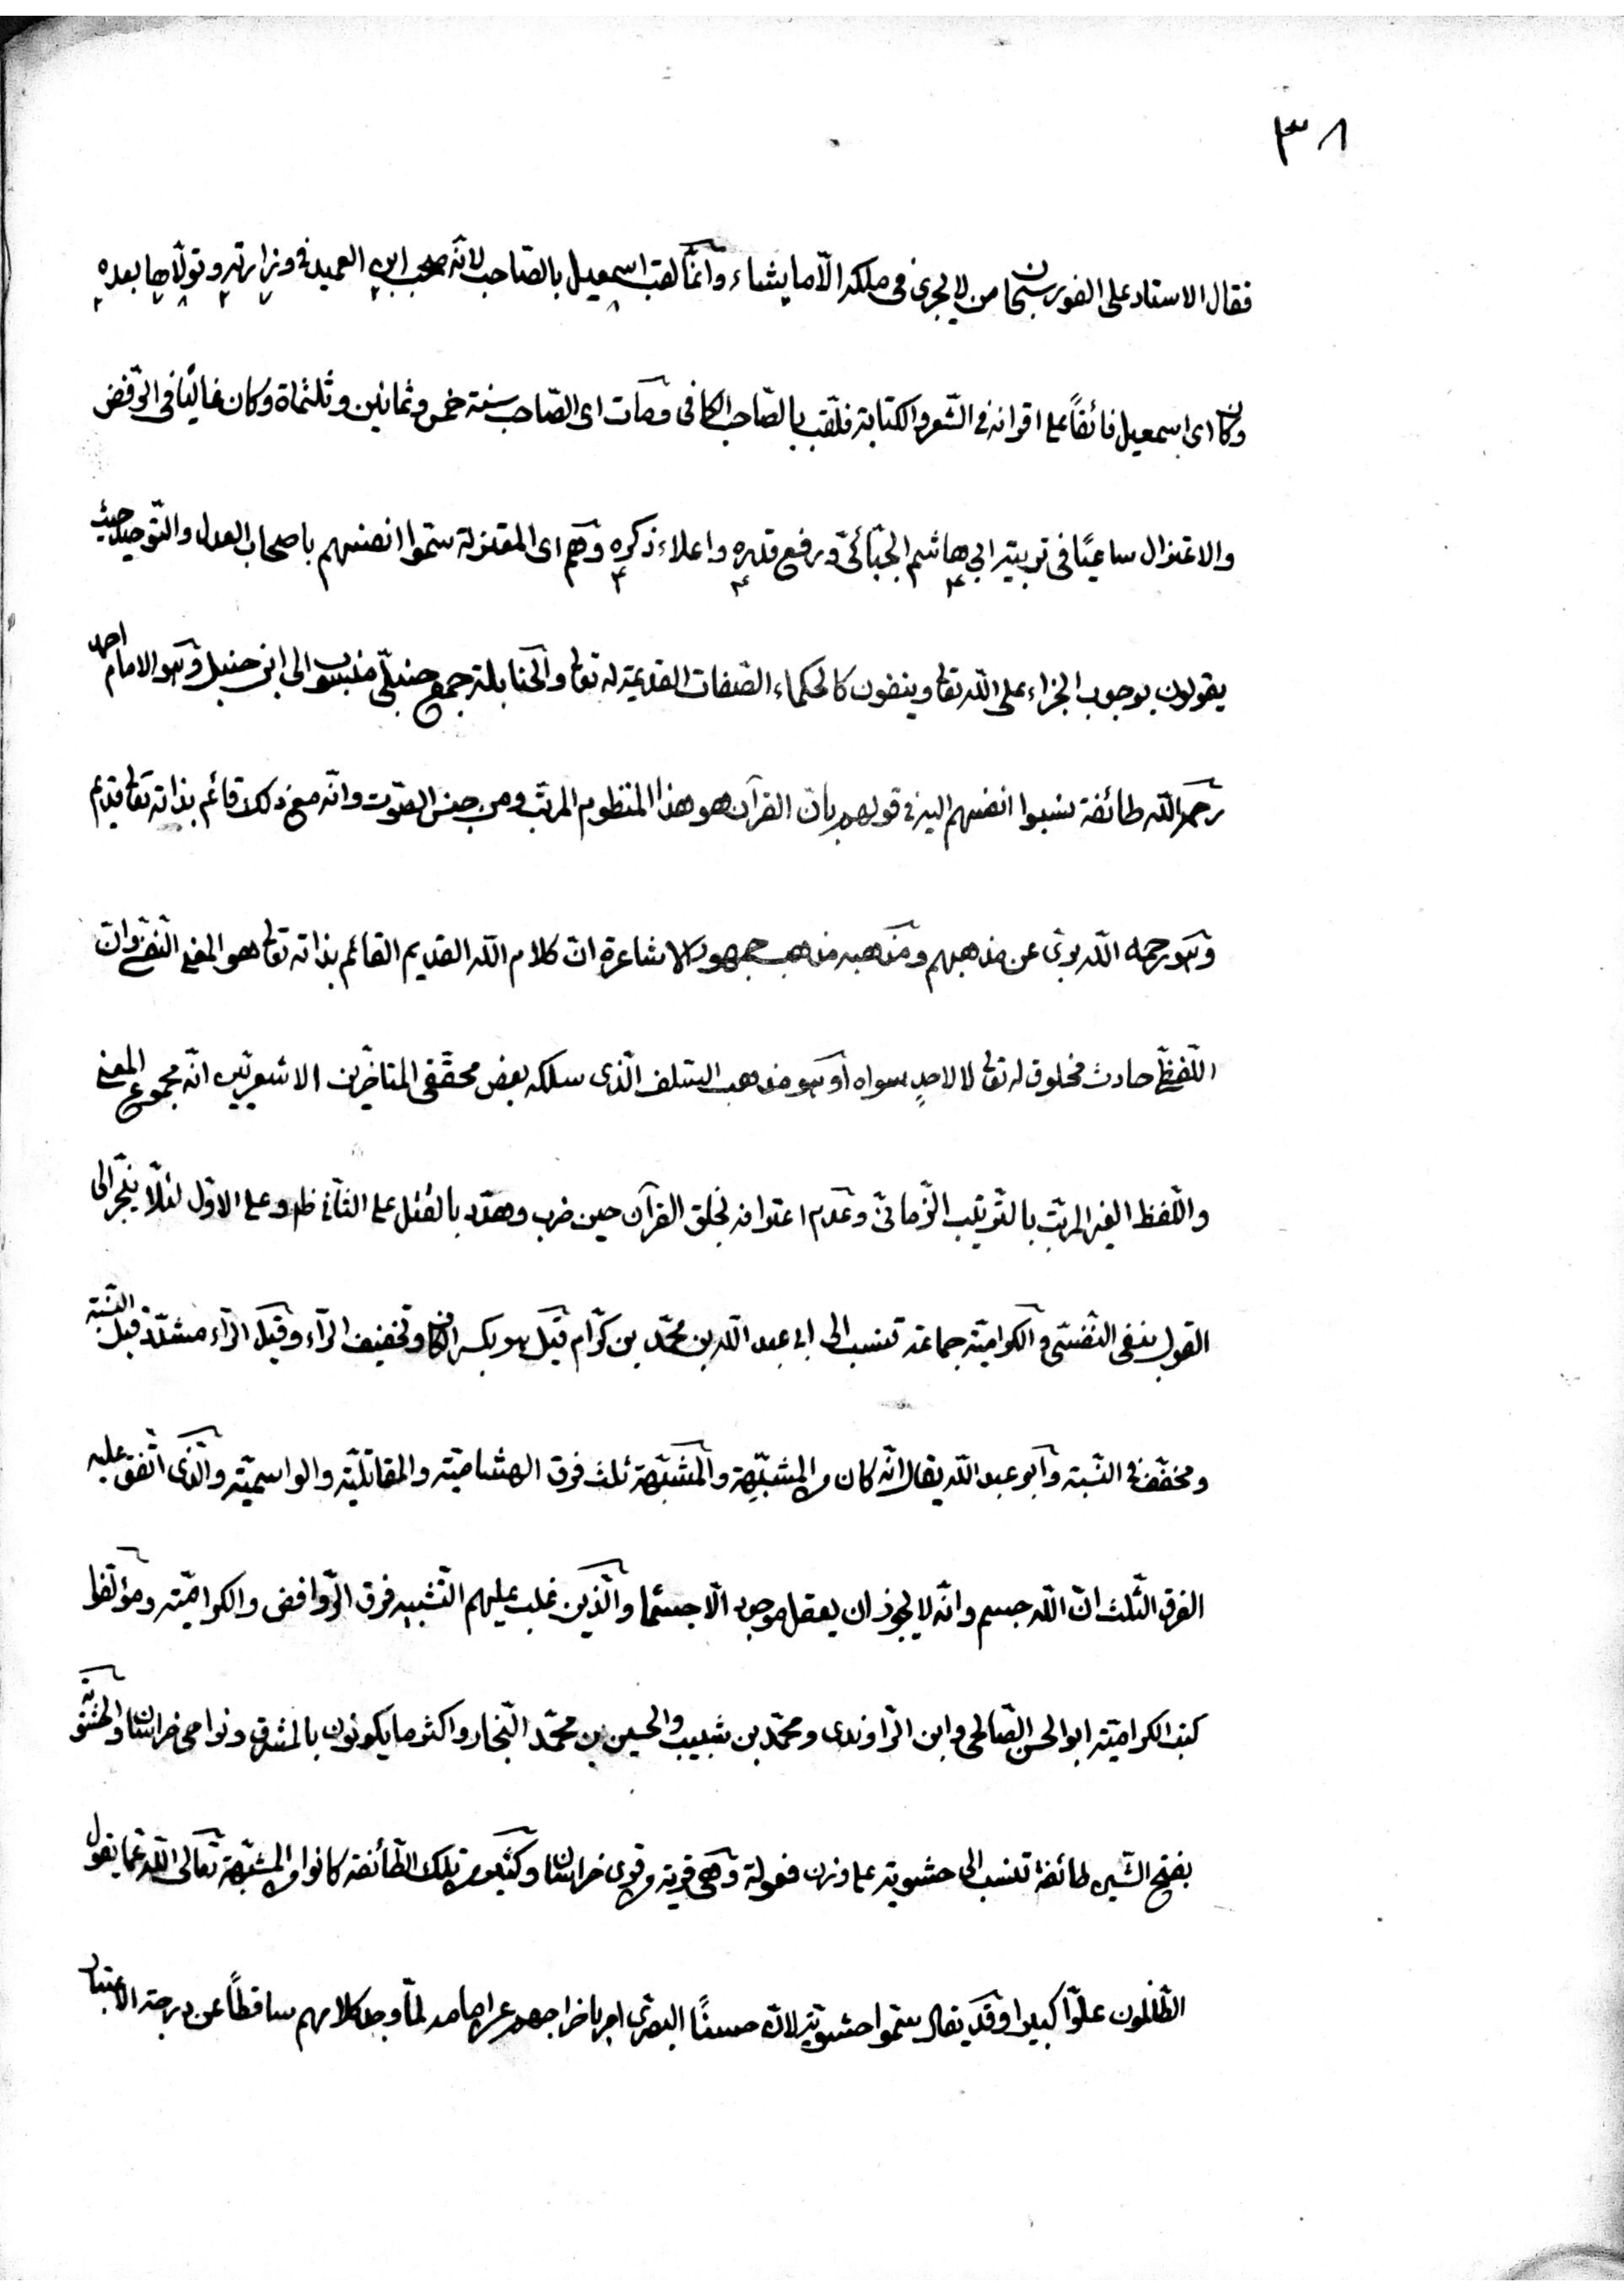 ٣٨
فقال الاستاد على الفور سبحان من لا يجرى فى ملكه الّا ما يشاء وانّما لقب اسمعيل بالصّاحب لانّه صحب ابن العميد فى وزارته وتولّاها بعده
وكان اى اسمعيل فائقاً على اقرانه فى الشّعر والكتابة فلقّب بالصّاحب الكافى ومات اى الصّاحب سنة خمس وثمانين وثلثمأة وكان غاليًا فى الرّفض
والاعتزال ساعيًا فى تربية ابى هاشم الجبّائىّ ورفع قدره واعلاء ذكره وهم اى المعتزلة سمّوا انفسهم باصحاب العدل والتّوحيد حيث
يقولون بوجوب الجزاء على الله تعا وينفون كالحكماء الصّفات القديمة له تعا والحنابلة جمع حنبلىّ منسوب الى ابن حنبل وهو الامام احمد
رحمه الله طائفة نسبوا انفسهم اليه فى قولهم بانّ القرآن هو هذا المنظوم المرتّب ومن جنس الصّوت وانّه مع ذلك قائم بذاته تعا قديم
وهو رحمه الله برئ عن مذهبهم ومذهبه مذهب جمهور الاشاعرة انّ كلام الله القديم القائم بذاته تعا هو المعنى النّفسىّ وانّ
اللّفظىّ حادث مخلوق له تعا لا لاحدٍ سواه او هو مذهب السّلف الّذى سلكه بعض محقّقى المتاخّرين الاشعريّين انّه مجموع المعنى
واللّفظ الغير المرتّب بالتّرتيب الزّمانىّ وعدم اعترافه بخلق القرآن حين ضرب وهدّد بالقتل على الثّانى ظ وعلى الاوّل لئلّا ينجرّ الى
القول بنفى النّفسىّ والكراميّة جماعة تنسب الى ابى عبد الله بن محمّد بن كرّام قيل هو بكسر الكاف وتخفيف الرّاء وقيل الرّاء مشدّد قبل النّسبة
ومخفّف فى النّسبة وابو عبد الله يقال انّه كان من المشبّهة والمشبّهة ثلث فرق الهشاميّة والمقاتليّة والواسميّة والّذى اتّفق عليه
الفرق الثّلث انّ الله جسم وانّه لا يجوز ان يعقل موجود الّا جسمًا والّذين غلب عليهم التّشبيه فرق الرّوافض والكراميّة ومؤلّفوا
كتب الكراميّة ابو الحسن الصّالحى وابن الرّاوندى ومحمّد بن شبيب والحسين بن محمّد النّجار واكثر ما يكونون بالمشرق ونواحى خراسان والحشويّة
بفتح الشّين طائفة تنسب الى حشوية على وزن فعولة وهى قرية من قرى خراسان وكثير من تلك الطّائفة كانوا من المشبّهة تعالى الله عمّا يقول
الظّالمون علوّا كبيرا وقد يقال سمّوا حشويّة لانّ حسنًا البصرىّ امر باخراجهم عن لمّا وجد كلامهم ساقطاً عن درجة الاعتبار